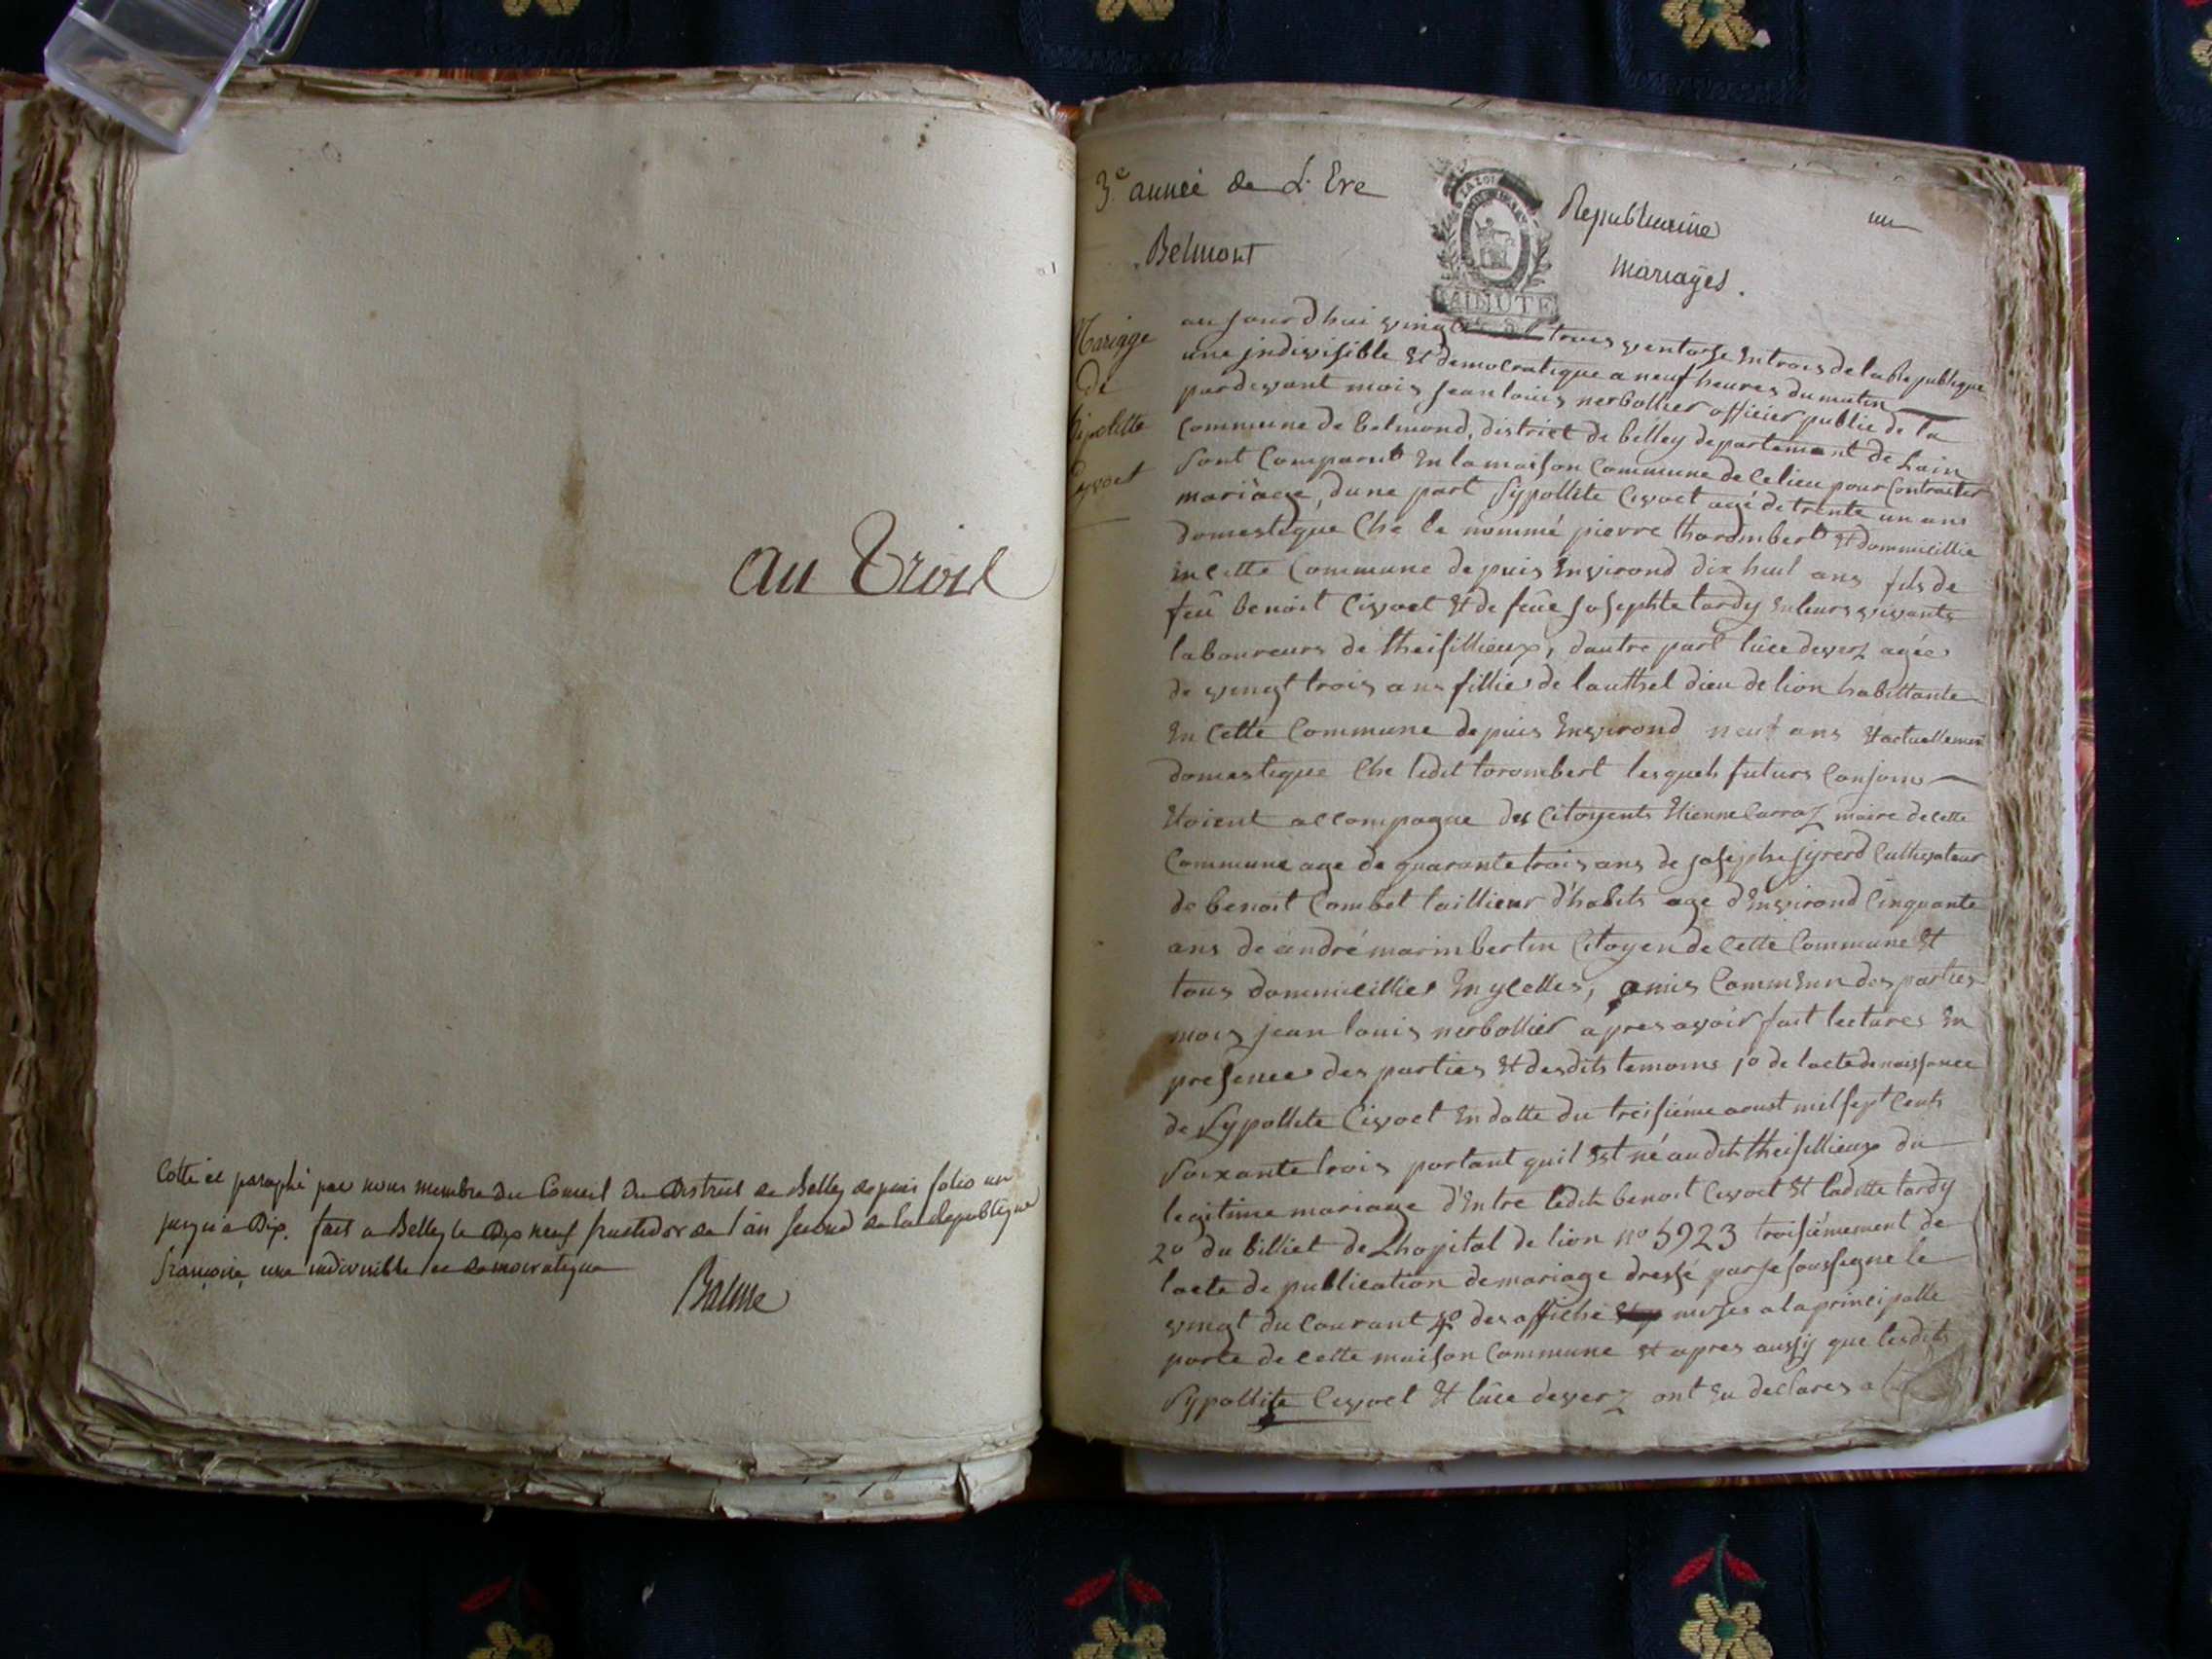 au Trois
Cotté et paraphé par nous membre du Conseil du District de Belley depuis folio un
jusqu'a Dix. fait a Belley le Dix neuf fructidor de l'an second de la Republique
françoise une indivisible et democratique
Balme
3e année de L'Ere Republicaine un
Belmont mariages.
LA LOI
MINUTE
Mariage
de
hipolitte
Cyvoct
aujourdhui vingt trois ventose En trois de la Republique
une indivisible Et democratique a neuf heures du matin
pardevant mois jean louis nerbollier officier public de la
Commune de belmond, district de belley departement de Lain
sont Comparut En la maison Commune de Ce lieu pour Contracter
mariage, dune part hypollite Civoct agé de trente un ans
domestique Ché le nommé pierre thorombert Et dommicillié
En Cette Commune depuis Environd dix huit ans fils de
feû benoit Civoct Et de feûe josephte tardy En leurs vivants
laboureurs de theisillieux, dautre part lûce deverz agée
de vingt trois ans fillie de lauthel dieu de lion habittante
En Cette Commune depuis Environd neuf ans Et actuellement
domestique Ché ledit torombert lesquels futurs Conjoins
Etoient accompagne des Citoyents Etienne Carraz maire de cette
Commune age de quarante trois ans de josephe Cultivateur
de benoit Combet taillieur d'habits agé d'Environd Cinquante
ans de andré marin bertin Citoyen de Cette Commune Et
tous dommicillies En ycelles, amis Commeun des parties
mois jean louis nerbollier apres avoir fait lectures En
presence des parties Et desdits temoins 1o de lacte de naissance
de hypollite Civoct En datte du treisiéme aoust mil sept Cents
soixante trois portant quil Est né audit theisillieux du
legitime mariage d'Entre ledit benoit Civoct Et laditte tardy
2o du billiet de Lhopital de lion no 5923 troisiémement de
lacte de publication de mariage dressé par je soussigne le
vingt du Courant 4o des affiche mises a la principalle
porte de cette maison Commune Et apres aussy que lesdits
hypollite Civoct Et lûce deverz ont Eu declares a